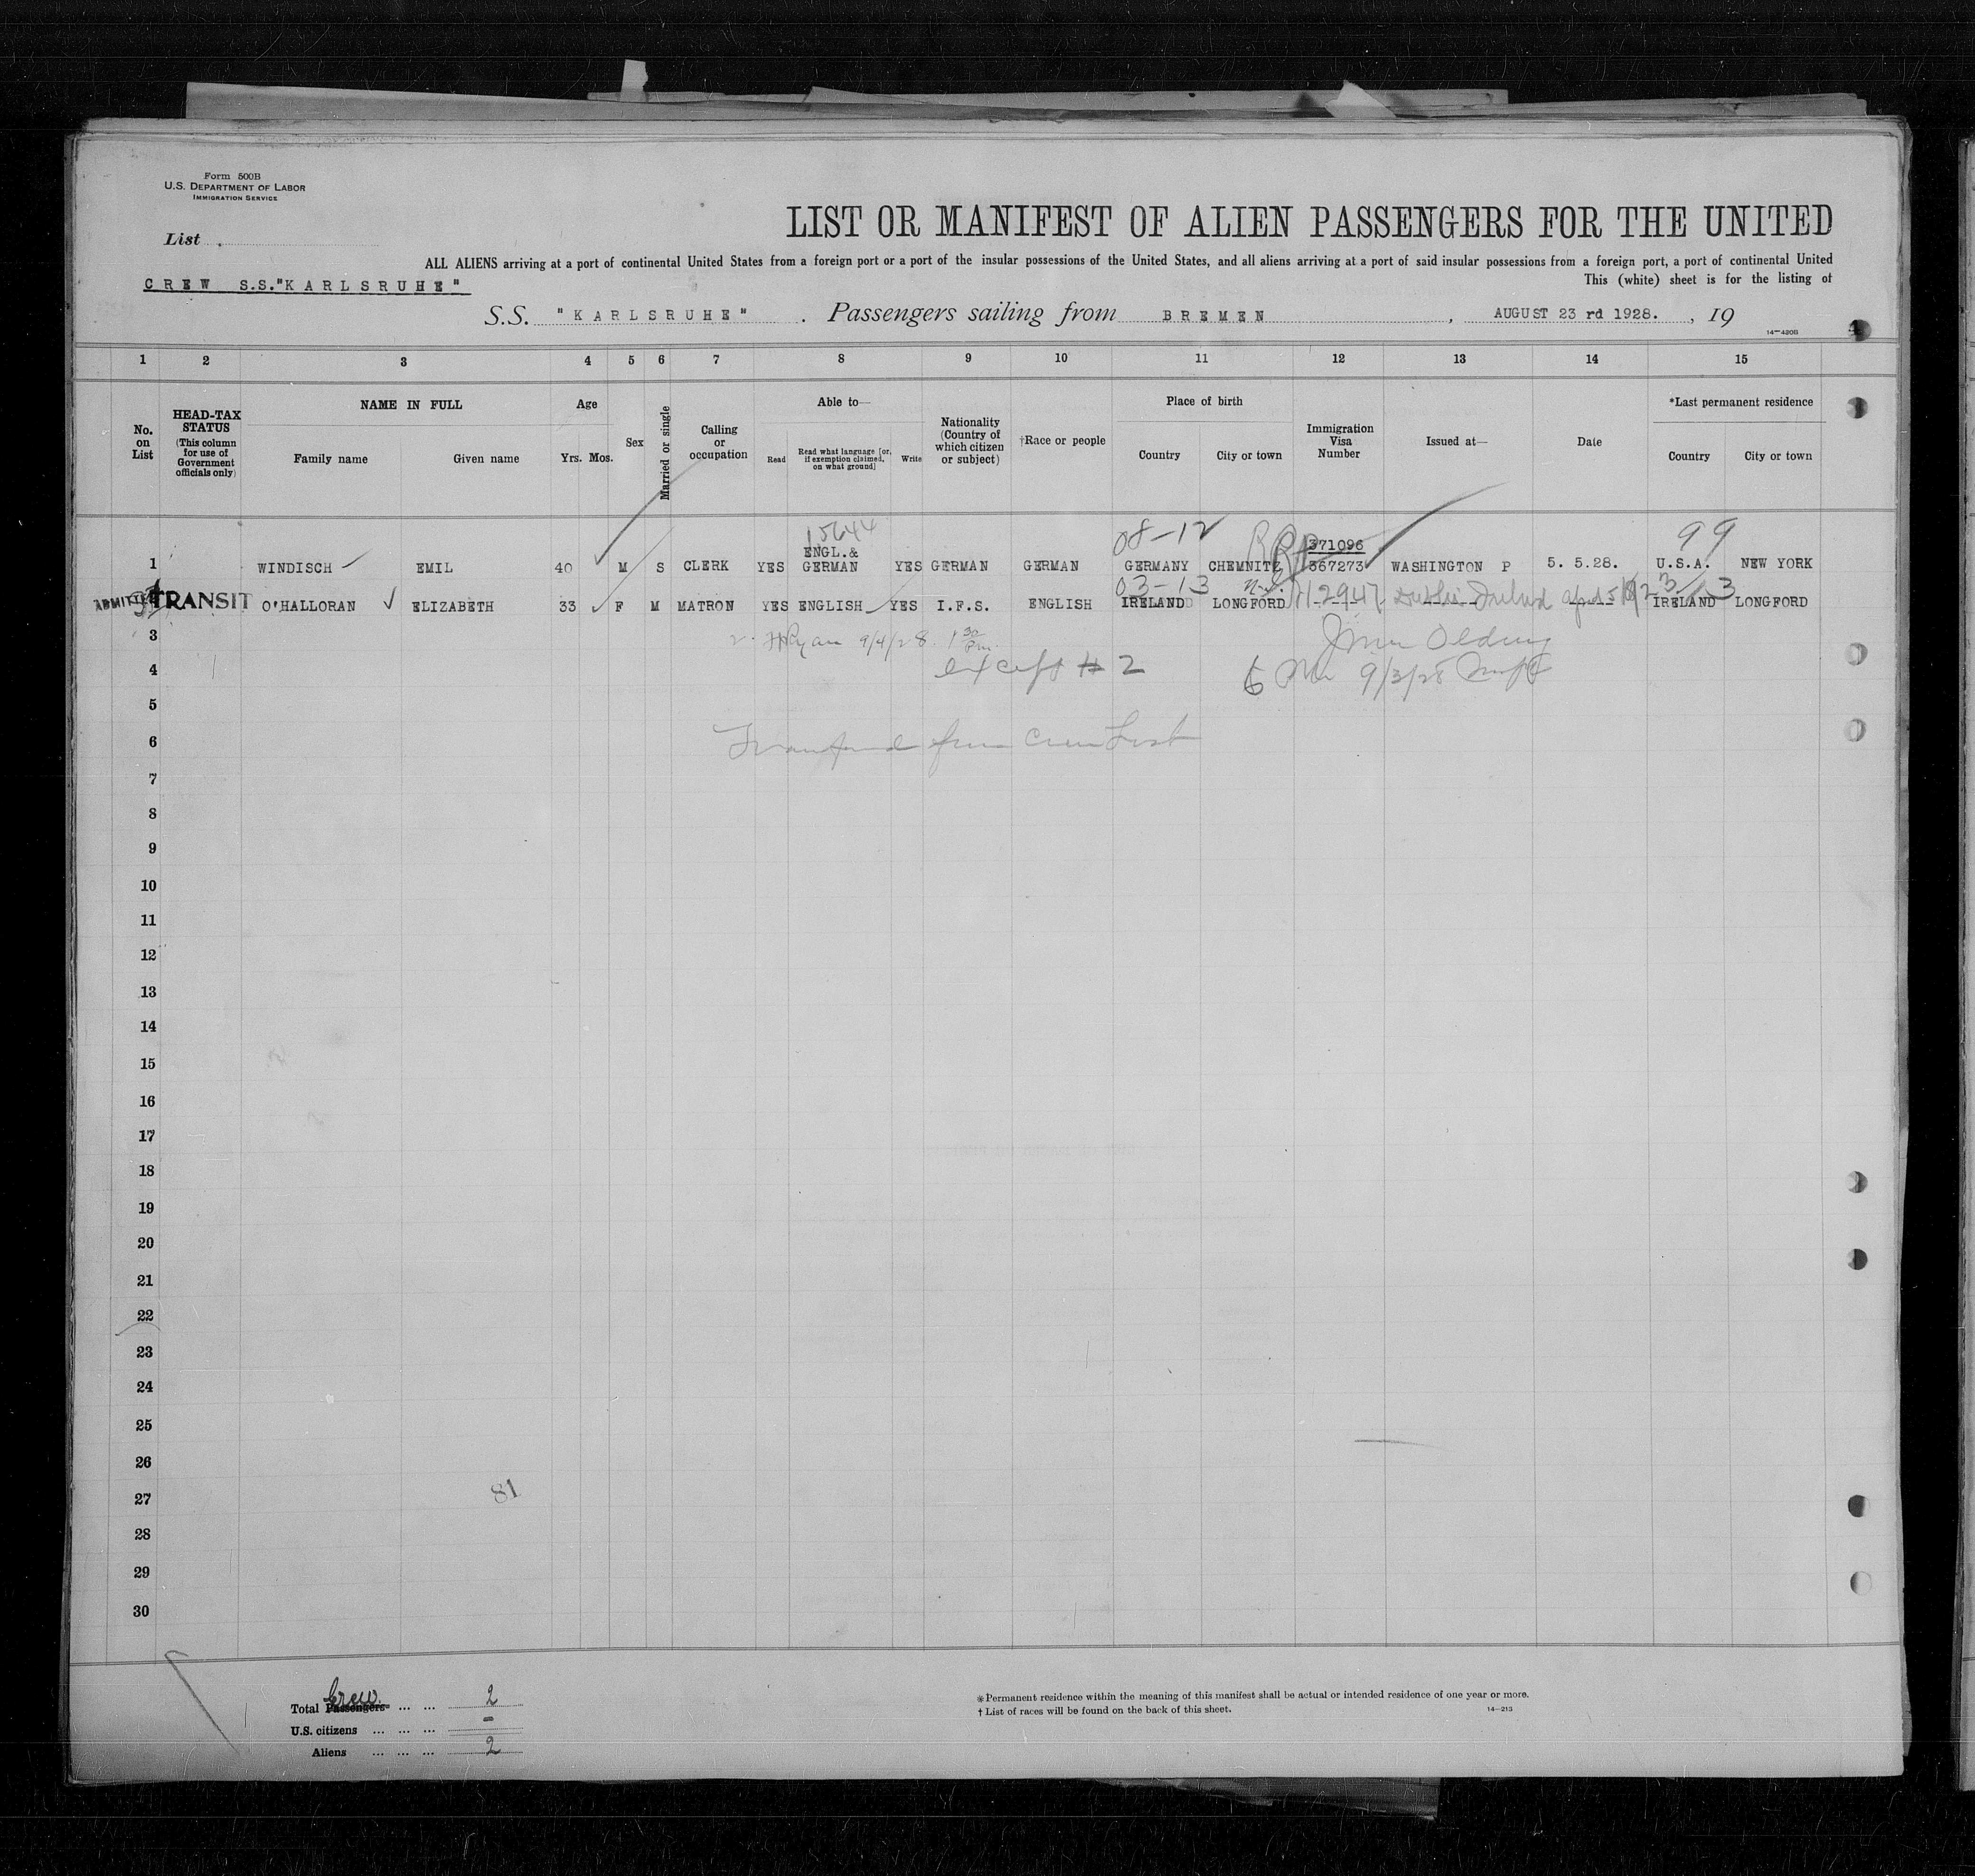 Form 500B
U.S. DEPARTMENT OF LABOR
IMMIGRATION SERVICE
List
LIST OR MANIFEST OF ALIEN PASSENGERS FOR THE UNITED
ALL ALIENS arriving at a port of continental United States from a foreign port or a part of the insular possessions of the United States, and all aliens arriving at a port of said insular possessions from a foreign port, a part of continental United
CREW S.S."KARLSRUHE"
This (white) sheet is for the listing of
S.S. "KARLSRUHE". Passengers sailing from BREMEN, AUGUST 23 rd 1928., 19
14-420B
1 2 3 4 5 6 7 8 9 10 11 12 13 14 15
No. on List
HEAD-TAX STATUS (This column for use of Government officials only)
NAME IN FULL
Family name Given name
Age
Yrs. Mos.
Sex
Married or single
Calling or occupation
Able to—
Read
Read what language [or, if exemption claimed, on what ground]
Write
Nationality (Country of which citizen or subject)
†Race or people
Place of birth
Country City or town
Immigration Visa Number
Issued at—
Date
*Last permanent residence
Country City or town
15644 08-12 99
371096
1 WINDISCH EMIL 40 M S CLERK YES ENGL.& GERMAN YES GERMAN GERMAN GERMANY CHEMNITZ 367273 WASHINGTON P 5. 5.28. U.S.A. NEW YORK
03-13
ADMITTED TRANSIT O'HALLORAN ELIZABETH 33 F M MATRON YES ENGLISH YES I.F.S. ENGLISH IRELAND LONGFORD Dublin Ireland IRELAND LONGFORD
3 Ryan 9/4/28 1 30 Pm.
4 except # 2 9/3/28
5
6 Transferred from Crew List
7
8
9
10
11
12
13
14
15
16
17
18
19
20
21
22
23
24
25
26
27
81
28
29
30
Total Passengers Crew 2
U.S. citizens -
Aliens 2
* Permanent residence within the meaning of this manifest shall be actual or intended residence of one year or more.
† List of races will be found on the back of this sheet.
14-213